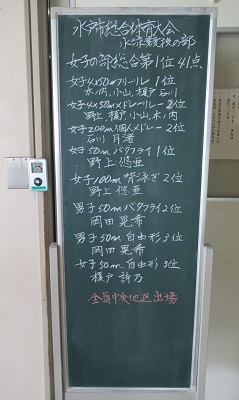 水戸市総合体育大会
水泳競技の部
女子の部総合第1位 41点
女子4×50mフリーリレー1位
木ノ内、小山、榎戸、石川
女子4×50mメドレーリレー2位
野上、榎戸、小山、木ノ内
女子200m個人メドレー2位
石川 月渚
女子50mバタフライ1位
野上 悠亜
女子100m背泳ぎ2位
野上 悠亜
男子50mバタフライ2位
岡田 晃希
男子50m自由形3位
岡田 晃希
女子50m自由形3位
榎戸 詩乃
全員中央地区出場